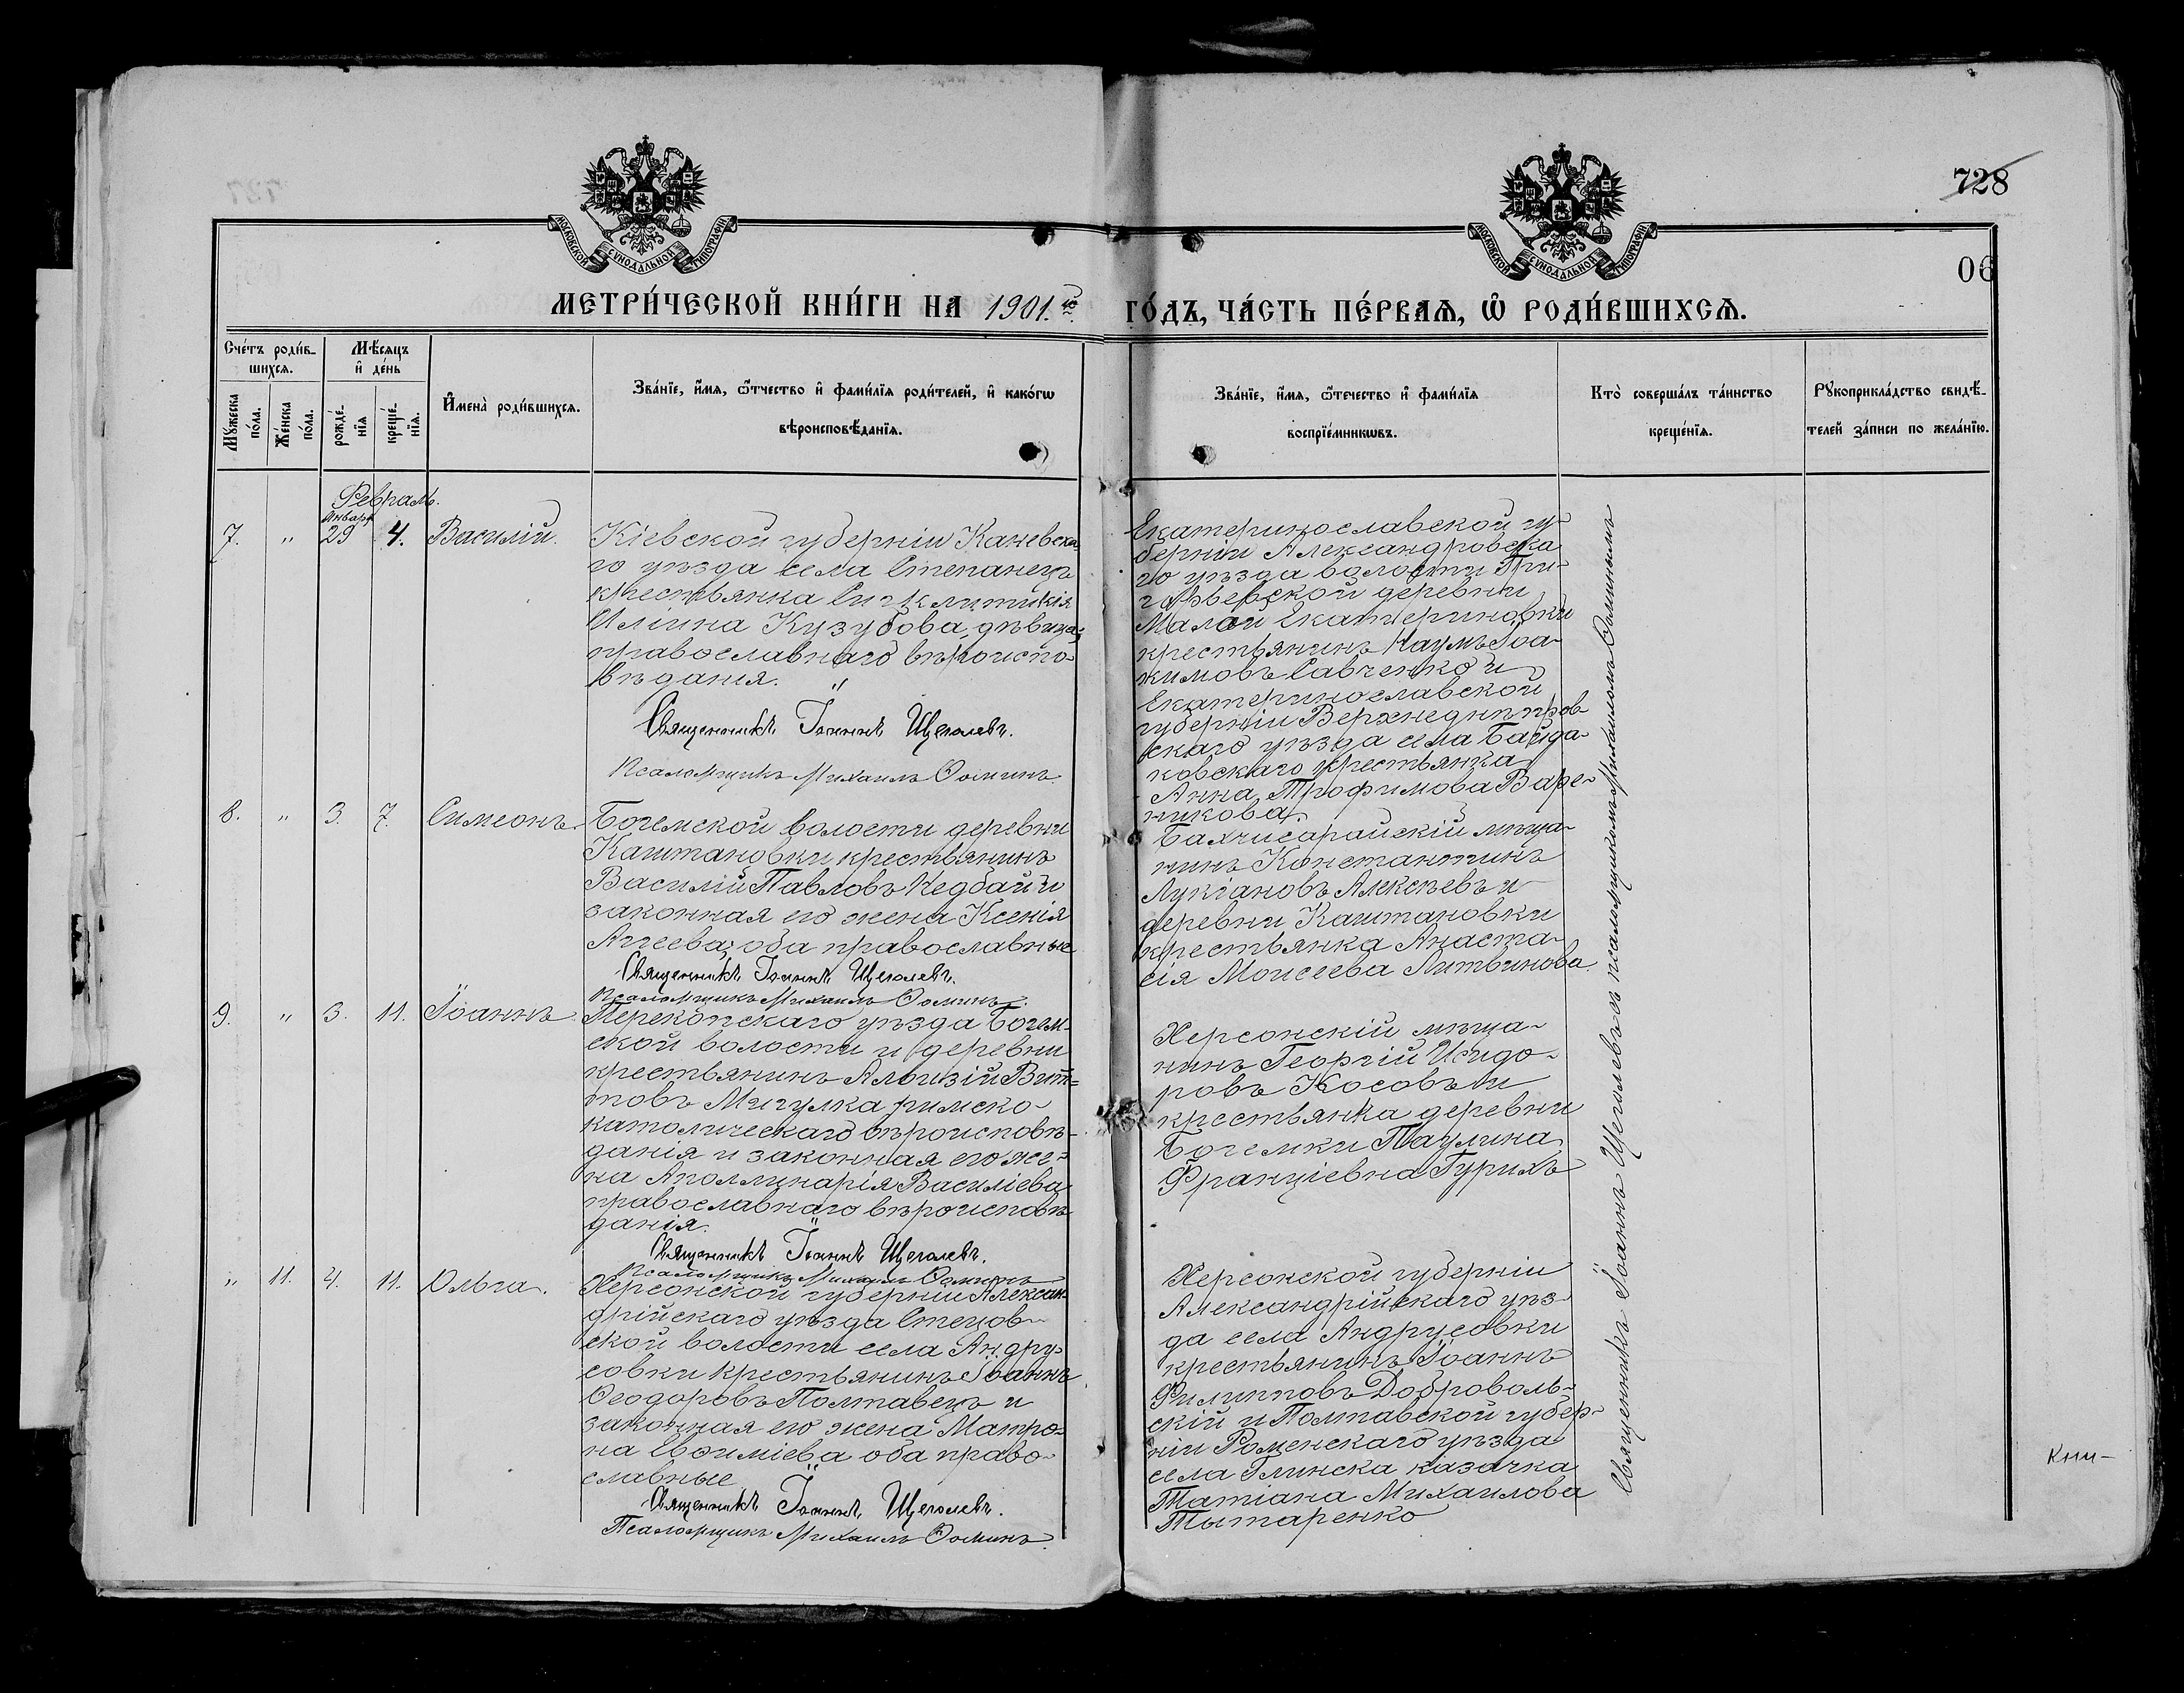 728
06
МОСКОВСКОЙ СѴНОДАЛЬНОЙ ТИПОГРАФІИ
МОСКОВСКОЙ СѴНОДАЛЬНОЙ ТИПОГРАФІИ
МЕТРИ́ЧЕСКОЙ КНИ́ГИ НА 1901.й ГО́ДЪ, ЧА́СТЬ ПЕ́РВАѦ, Ѡ РОДИ́ВШИХСѦ.
Сче́тъ роди́в-
шихсѧ.
Мꙋ́жеска по́ла.
Же́нска по́ла.
Мѣ́сѧцъ и де́нь
рожде́-
нїѧ
креще́-
нїѧ.
И҆мена̀ роди́вшихсѧ.
Зва́нїе, и҆́мѧ, ѻ҆́тчество и҆ фами́лїѧ роди́телей, и҆ како́гѡ
вѣроисповѣ́данїѧ.
Зва́нїе, и҆́мѧ, ѻ҆́течество и҆ фами́лїѧ
воспрїе́мникѡвъ.
Кто̀ соверша́лъ та́инство
креще́нїѧ.
Рꙋкоприкла́дство свидѣ́-
телей за́писи по жела́нїю.
Февраль.
Января
7. " 29 4. Василій.
Кіевской губерніи Каневска
го уѣзда села Степанецъ
крестьянка Сигклитикія
Иліина Кузубова, дѣвица,
православнаго вѣроиспо-
вѣданія.
Священникъ Іоаннъ Щеголевъ.
Псаломщикъ Михаилъ Ѳоминъ
Екатеринославской гу-
берніи Александровска
го уѣзда волости Гри-
горьевской деревни
Малой Екатериновки
крестьянинъ Наумъ Іоа-
кимовъ Савченко и
Екатеринославской
губерніи Верхнеднѣпров
скаго уѣзда села Байда-
ковскаго крестьянка
Анна Трофимова Варе-
никова.
8. " 3. 7. Симеонъ.
Богемской волости деревни
Каштановки крестьянинъ
Василій Павловъ Недбай и
законная его жена Ксенія
Аггеева, оба православные
Священникъ Іоаннъ Щеголевъ.
Псаломщикъ Михаилъ Ѳоминъ.
Бахчисарайскій мѣща-
нинъ Константинъ
Лукіановъ Алексѣевъ и
деревни Каштановки
крестьянка Анаста-
сія Моисеева Литвинова.
9. " 3. 11. Іоаннъ.
Перекопскаго уѣзда Богем-
ской волости и деревни
крестьянинъ Алоизій Вит-
товъ Мигулка римско-
католическаго вѣроисповѣ-
данія и законная его же-
на Аполлинарія Василіева
православнаго вѣроисповѣ
данія.
Священникъ Іоаннъ Щеголевъ.
Псаломщикъ Михаилъ Ѳоминъ
Херсонскій мѣща-
нинъ Георгій Исидо-
ровъ Косовъ и
крестьянка деревни
Богемки Паулина
Францíевна Гурихъ
" 11. 4. 11. Ольга.
Херсонской губерніи Алексан-
дрійскаго уѣзда Стецов-
ской волости села Андру-
совки крестьянинъ Іоаннъ
Ѳеодоровъ Полтавецъ и
законная его жена Матро-
на Евѳиміева оба право-
славные
Священникъ Іоаннъ Щеголевъ.
Псаломщикъ Михаилъ Ѳоминъ.
Херсонской губерніи
Александрійскаго уѣз-
да села Андрусовки
крестьянинъ Іоаннъ
Филипповъ Доброволь-
скій и Полтавской губер-
ніи Роменскаго уѣзда
села Глинска казачка
Татіана Михаилова
Тытаренко
Священникъ Іоаннъ Щеголевъ съ псаломщикомъ Михаиломъ Ѳоминымъ
Кни-